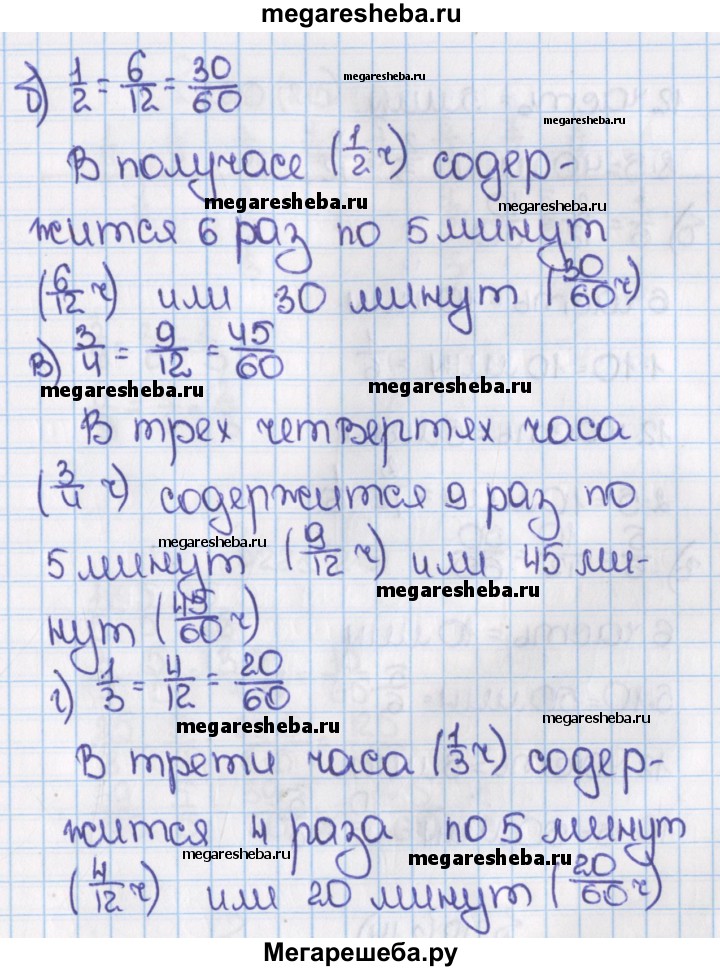 megaresheba.ru
б) 1/2 = 6/12 = 30/60
megaresheba.ru
megaresheba.ru
В получасе (1/2 ч) содер-
megaresheba.ru
megaresheba.ru
жится 6 раз по 5 минут
(6/12 ч) или 30 минут (30/60 ч)
в) 3/4 = 9/12 = 45/60
megaresheba.ru
megaresheba.ru
В трех четвертях часа
(3/4 ч) содержится 9 раз по
megaresheba.ru
5 минут (9/12 ч) или 45 ми-
megaresheba.ru
нут (45/60 ч)
г) 1/3 = 4/12 = 20/60
megaresheba.ru
megaresheba.ru
В трети часа (1/3 ч) содер-
жится 4 раза по 5 минут
megaresheba.ru
megaresheba.ru
(4/12 ч) или 20 минут (20/60 ч)
Мегарешеба.ру